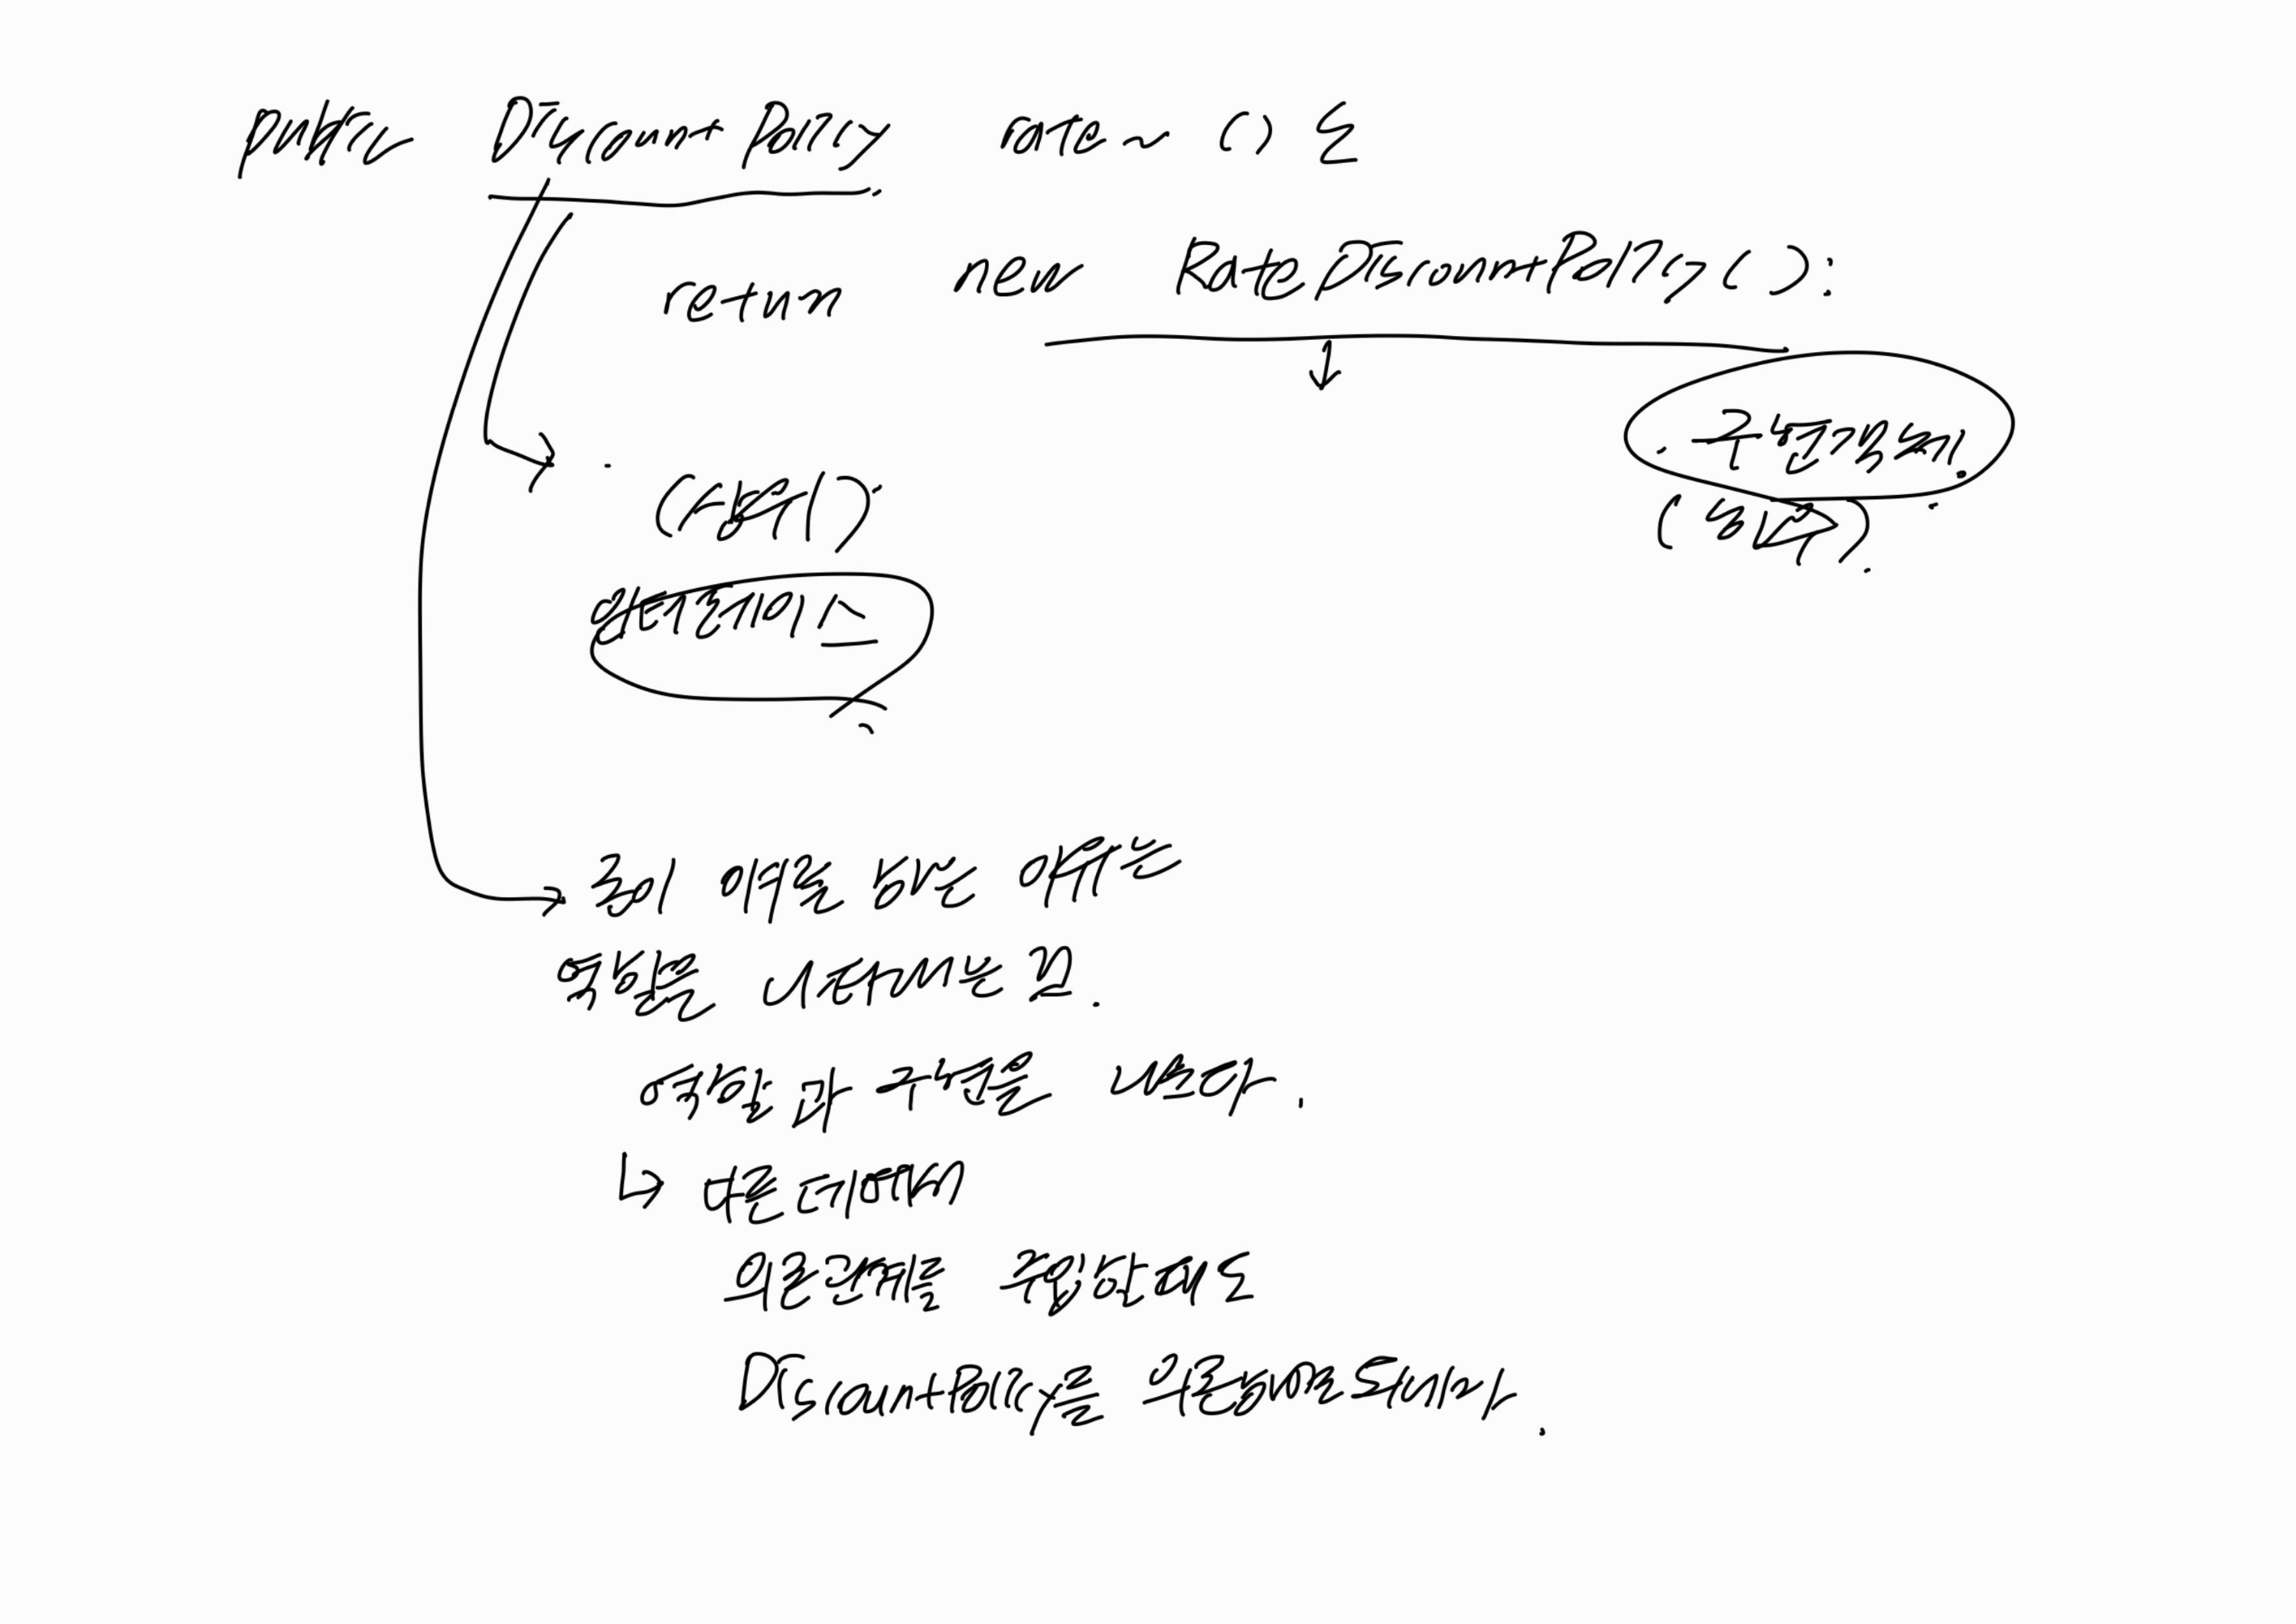 public DiscountPolicy rate~ () {
return new RateDiscountPolicy();
구현객체.
(상위)
(하위)
인터페이스
굳이 이렇게 하는 이유는
역할을 나타내는 것.
역할과 구현을 나눈다.
↳ 다른데에서
의존관계를 주입할때도
DiscountPolicy를